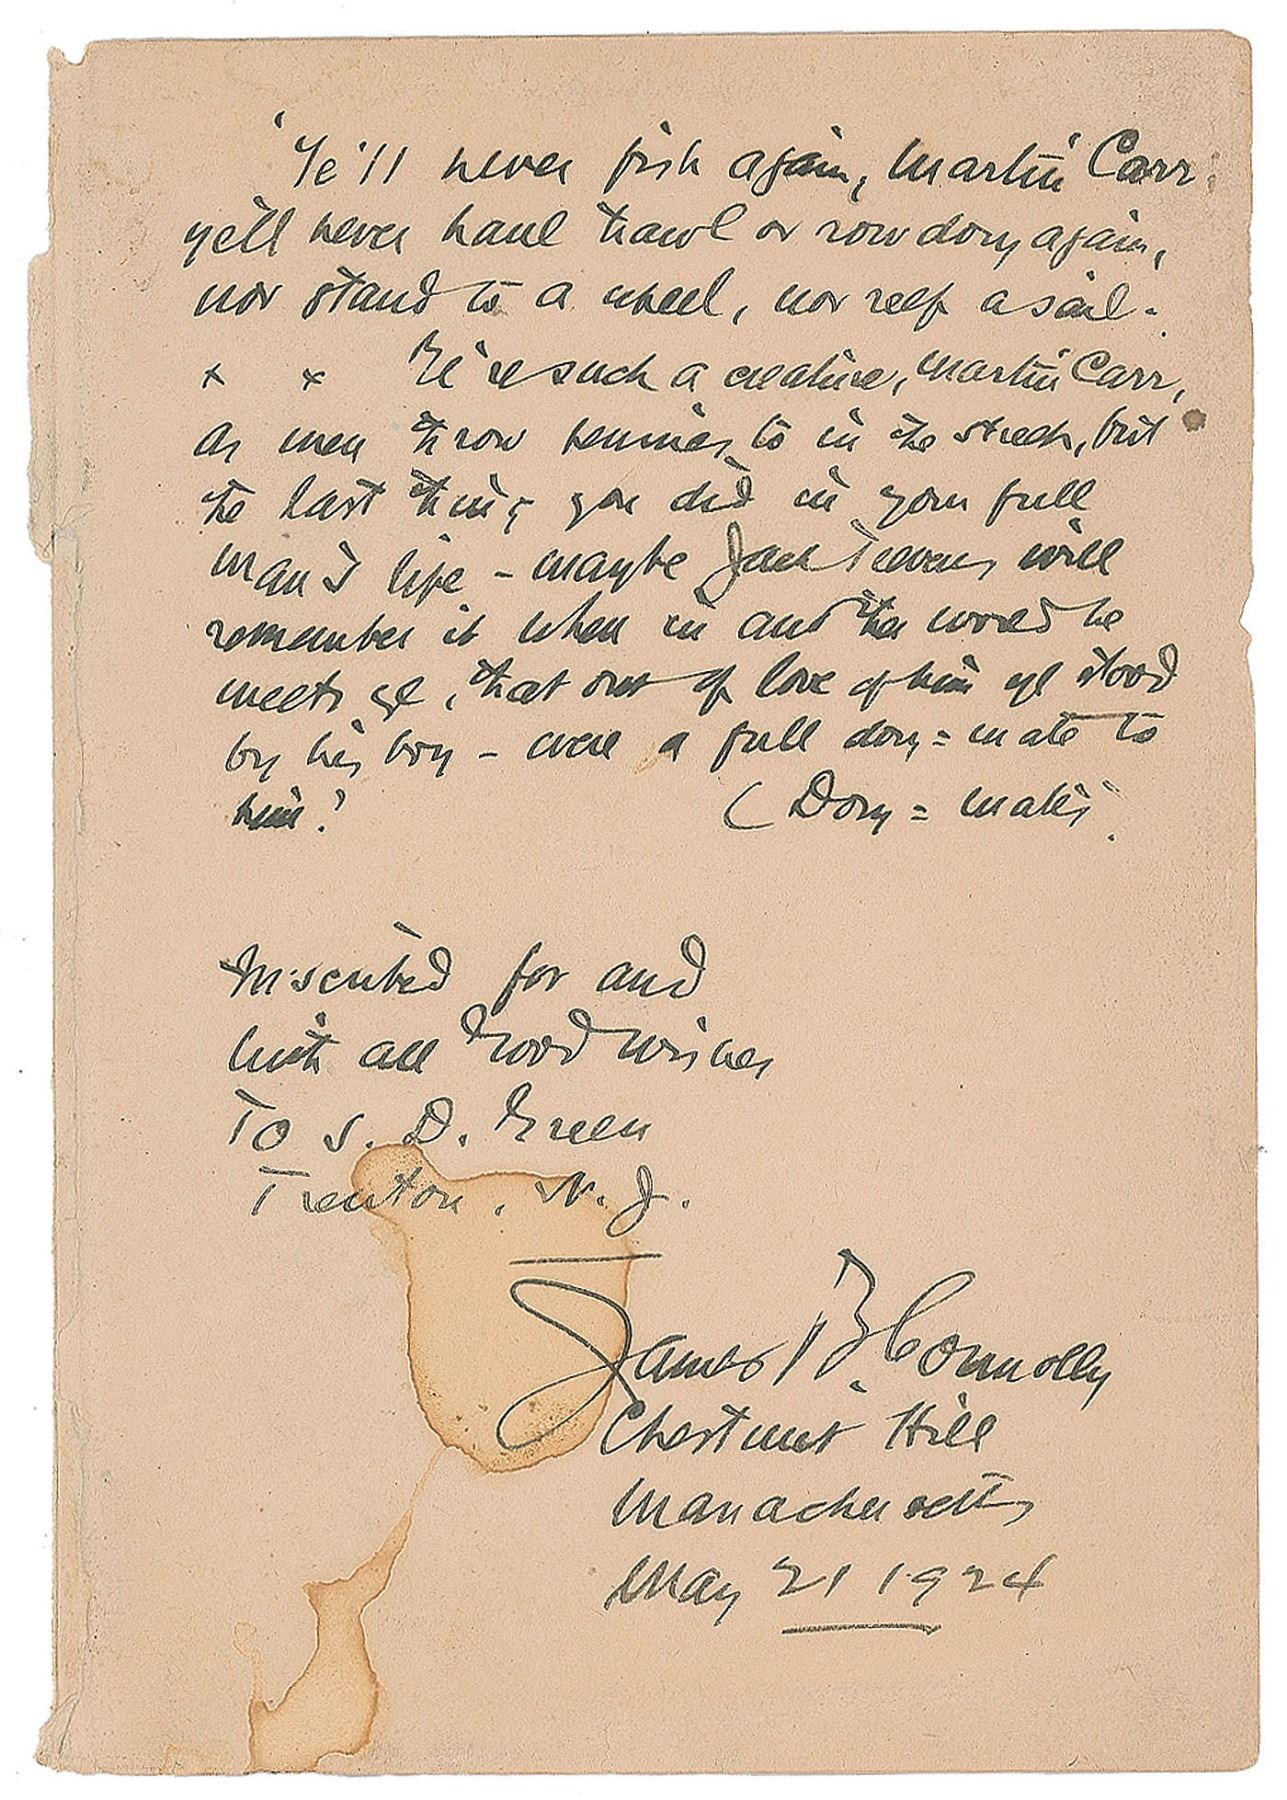 'Ye'll never fish again, Martin Carr;
ye'll never haul trawl or row dory again,
nor stand to a wheel, nor reef a sail.
x x Ye're such a creature, Martin Carr,
as men throw pennies to in the street, but
the last thing you did in your full
man's life – maybe Jack Teevens will
remember it when in another world he
meets ye, that out of love of him ye stood
by his boy – were a full dory=mate to
him!' (Dory=mates.
Inscribed for and
with all Good Wishes
To S. D. Green
Trenton, N. J.
James B. Connolly
Chestnut Hill
Massachusetts
May 21 1924